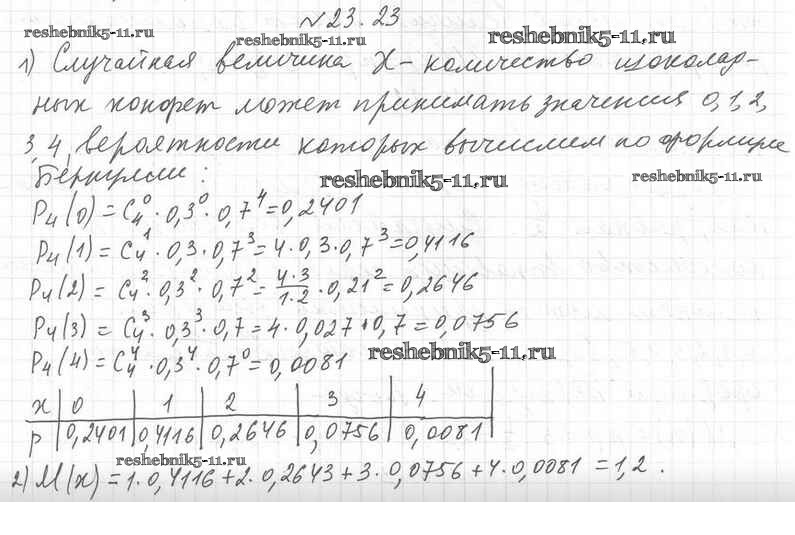 №23.23
reshebnik5-11.ru reshebnik5-11.ru reshebnik5-11.ru
1) Случайная величина X - количество шоколад-
ных конфет может принимать значения 0, 1, 2,
3, 4, вероятности которых вычислим по формуле
Бернулли:
reshebnik5-11.ru reshebnik5-11.ru
P₄(0) = C₄⁰ · 0,3⁰ · 0,7⁴ = 0,2401
P₄(1) = C₄¹ · 0,3 · 0,7³ = 4 · 0,3 · 0,7³ = 0,4116
P₄(2) = C₄² · 0,3² · 0,7² = 4·3/1·2 · 0,21² = 0,2646
P₄(3) = C₄³ · 0,3³ · 0,7 = 4 · 0,027 · 0,7 = 0,0756
P₄(4) = C₄⁴ · 0,3⁴ · 0,7⁰ = 0,0081
reshebnik5-11.ru
x 0 1 2 3 4
p 0,2401 0,4116 0,2646 0,0756 0,0081
reshebnik5-11.ru
2) M(x) = 1 · 0,4116 + 2 · 0,2643 + 3 · 0,0756 + 4 · 0,0081 = 1,2.